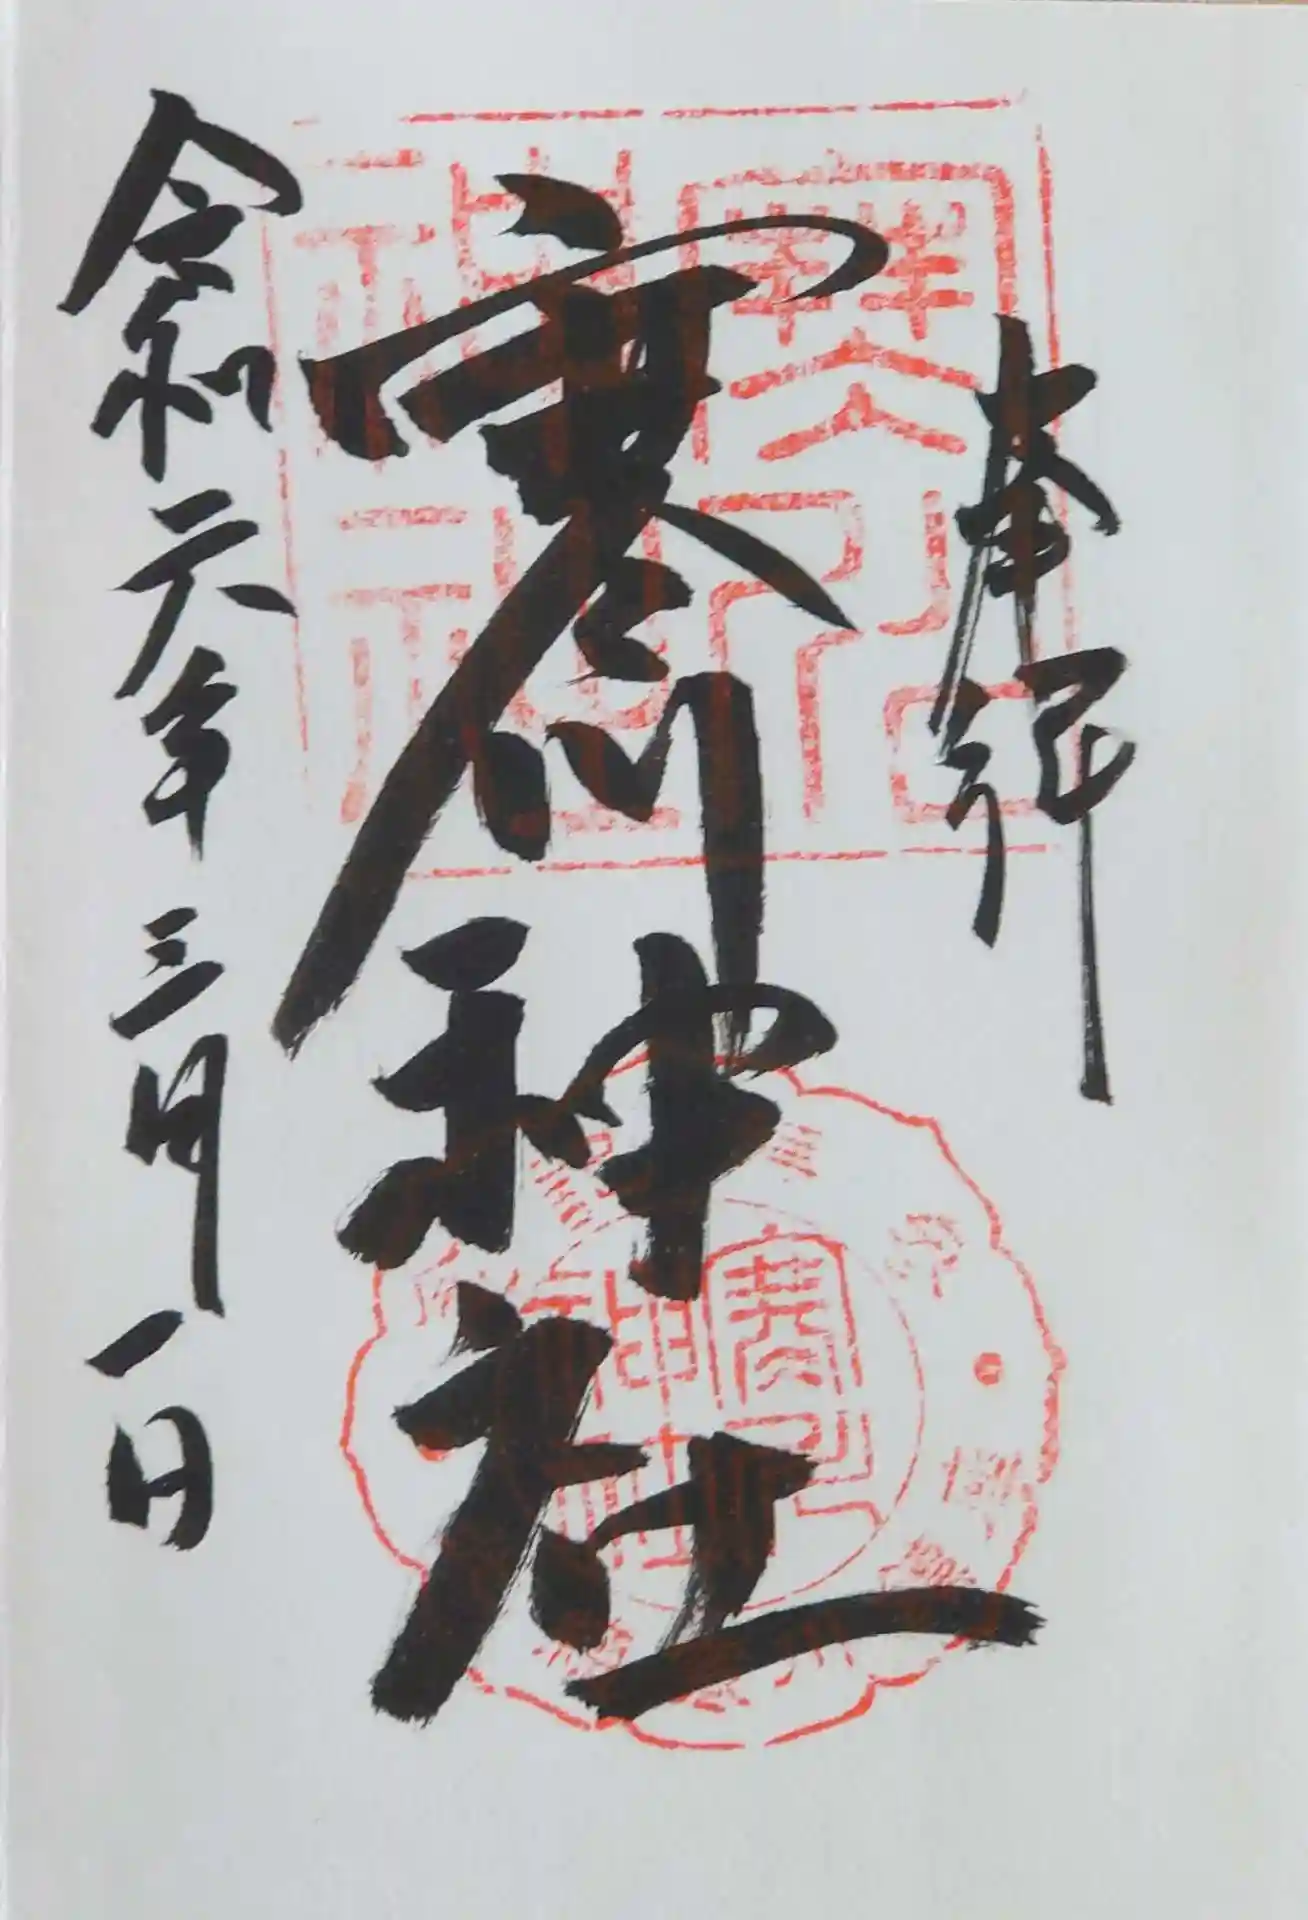 奉拝
寒川神社
令和六年三月一日
寒川神社
寒川神社